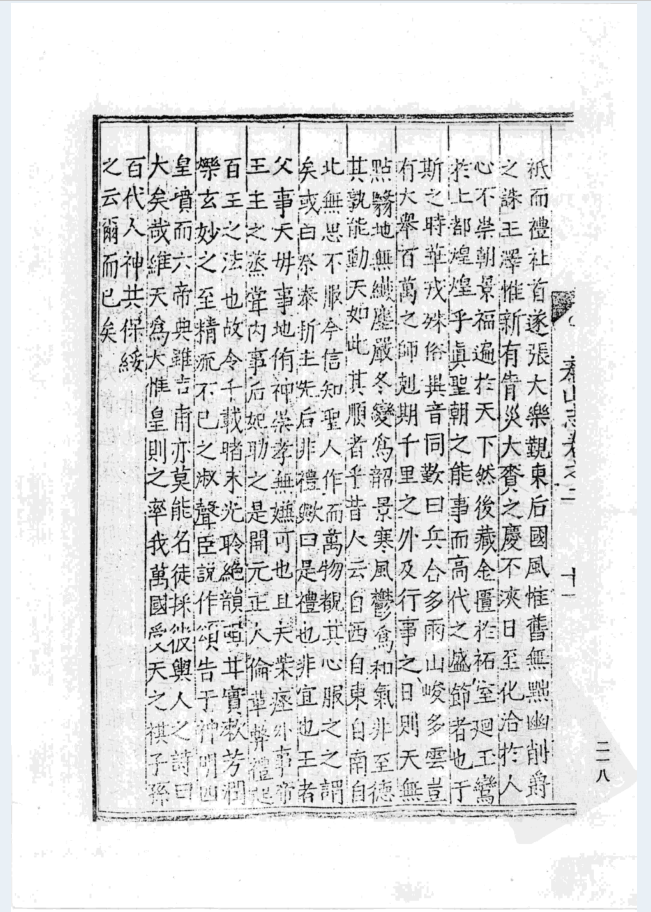 泰山志卷之二
十一
二一八
祇而禮社首遂張大樂覲東后國風惟舊無黜幽削爵
之誅王澤惟新有眚災大賚之慶不浹日至化洽於人
心不崇朝景福遍於天下然後藏金匱於祏室廻玉鑾
於上都煌煌乎眞聖朝之能事而高代之盛節者也于
斯之時華戎殊俗異音同歎曰兵合多雨山峻多雲豈
有大舉百萬之師剋期千里之外及行事之日則天無
點翳地無纖塵嚴冬變爲韶景寒風鬱爲和氣非至德
其孰能動天如此其順者乎昔人云自西自東自南自
北無思不服今信知聖人作而萬物覩其心服之之謂
矣或曰祭泰折主先后非禮歟曰是禮也非宜也王者
父事天母事地侑神崇孝無嫌可也且夫柴瘞外事帝
王主之烝嘗内事后妃助之是開元正人倫革弊禮起
百王之法也故令千載睹末光聆絕韻咀其實漱芳潤
爍玄妙之至精流不已之淑聲臣說作頌告于神明四
皇墳而六帝典雖吉甫亦莫能名徒採彼輿人之詩曰
大矣哉維天爲大惟皇則之率我萬國受天之祺子孫
百代人神共保綏
之云爾而已矣